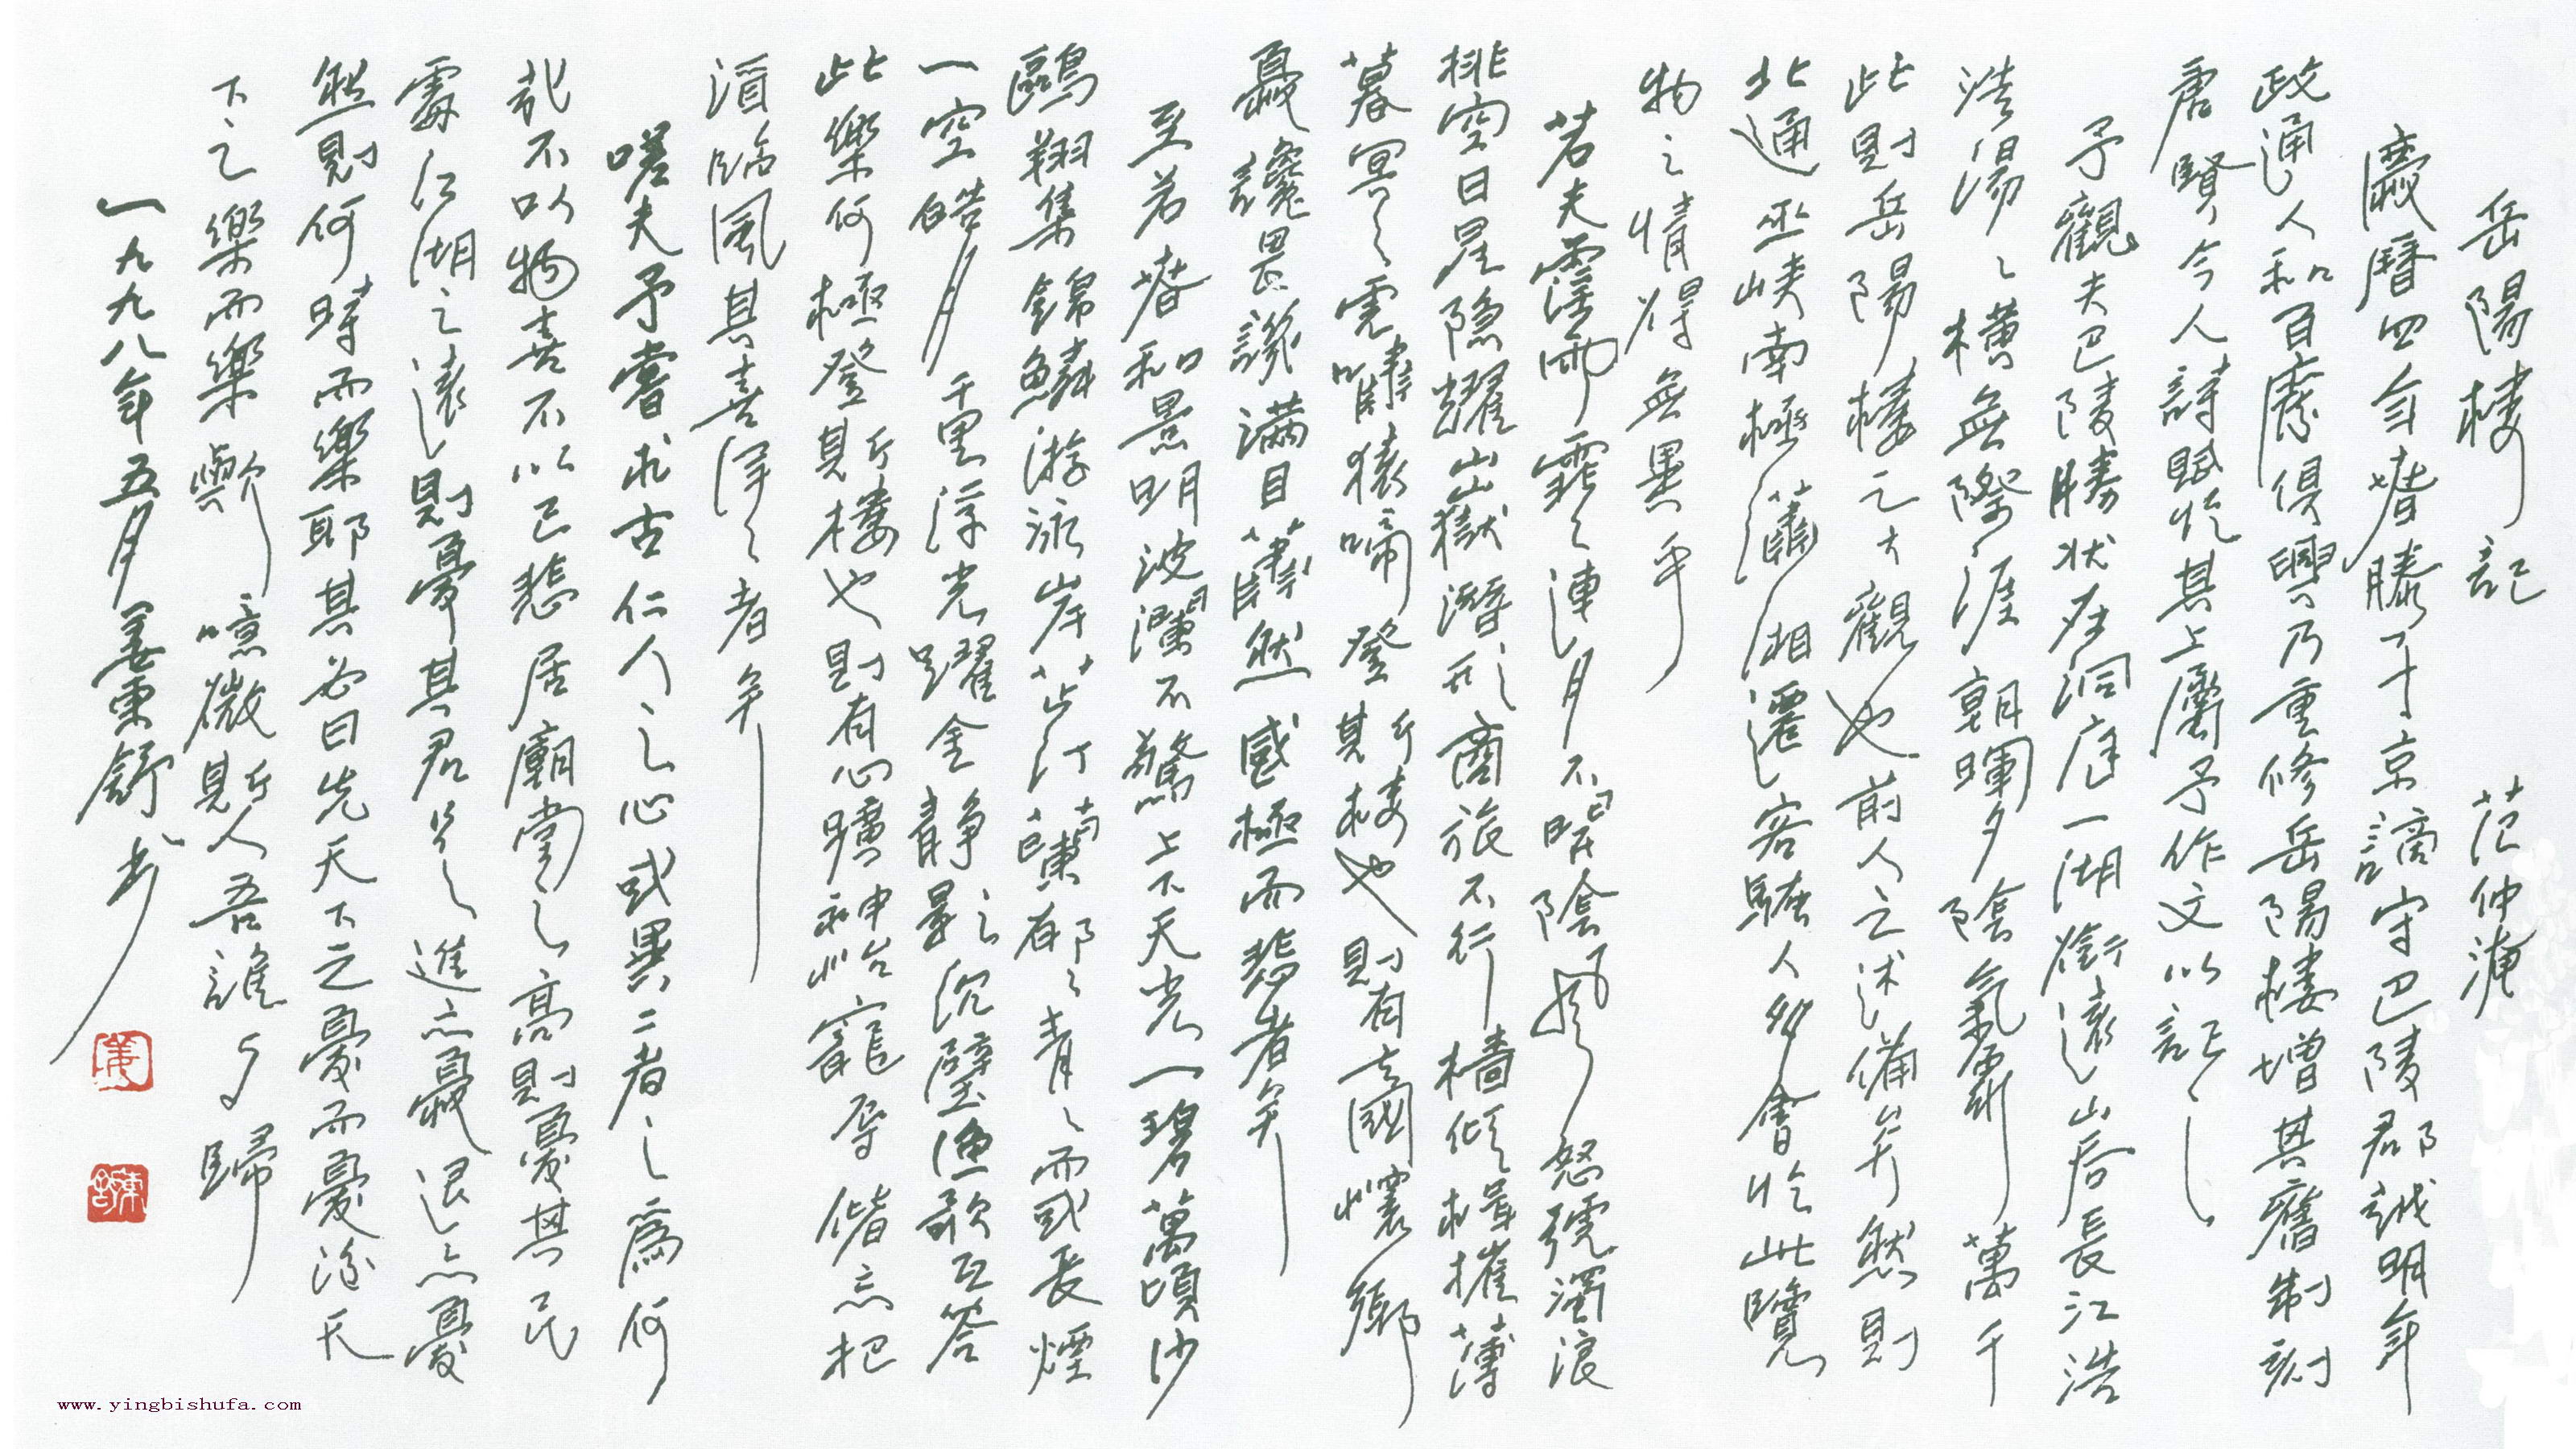 岳陽樓記 范仲淹
慶曆四年春滕子京謫守巴陵郡越明年
政通人和百廢俱興乃重修岳陽樓增其舊制刻
唐賢今人詩賦於其上屬予作文以記之
予觀夫巴陵勝狀在洞庭一湖銜遠山吞長江浩
浩湯〻橫無際涯朝暉夕陰氣象萬千
此則岳陽樓之大觀也前人之述備矣然則
北通巫峽南極瀟湘遷客騷人多會於此覽
物之情得無異乎
若夫霪雨霏〻連月不開陰風怒號濁浪
排空日星隐耀山嶽潛形商旅不行檣傾楫摧薄
暮冥〻虎嘯猿啼登斯樓也則有去國懷鄉
憂讒畏譏滿目蕭然感極而悲者矣
至若春和景明波瀾不驚上下天光一碧萬頃沙
鷗翔集錦鱗游泳岸芷汀蘭郁〻青〻而或長煙
一空皓月千里浮光躍金靜影沉璧漁歌互答
此樂何極登斯樓也則有心曠神怡寵辱偕忘把
酒臨風其喜洋〻者矣
嗟夫予嘗求古仁人之心或異二者之為何
哉不以物喜不以己悲居廟堂之高則憂其民
處江湖之遠則憂其君是進亦憂退亦憂
然則何時而樂耶其必曰先天下之憂而憂後天
下之樂而樂歟 噫微斯人吾誰与歸
一九九八年五月 姜東舒书
姜
東舒
www.yingbishufa.com